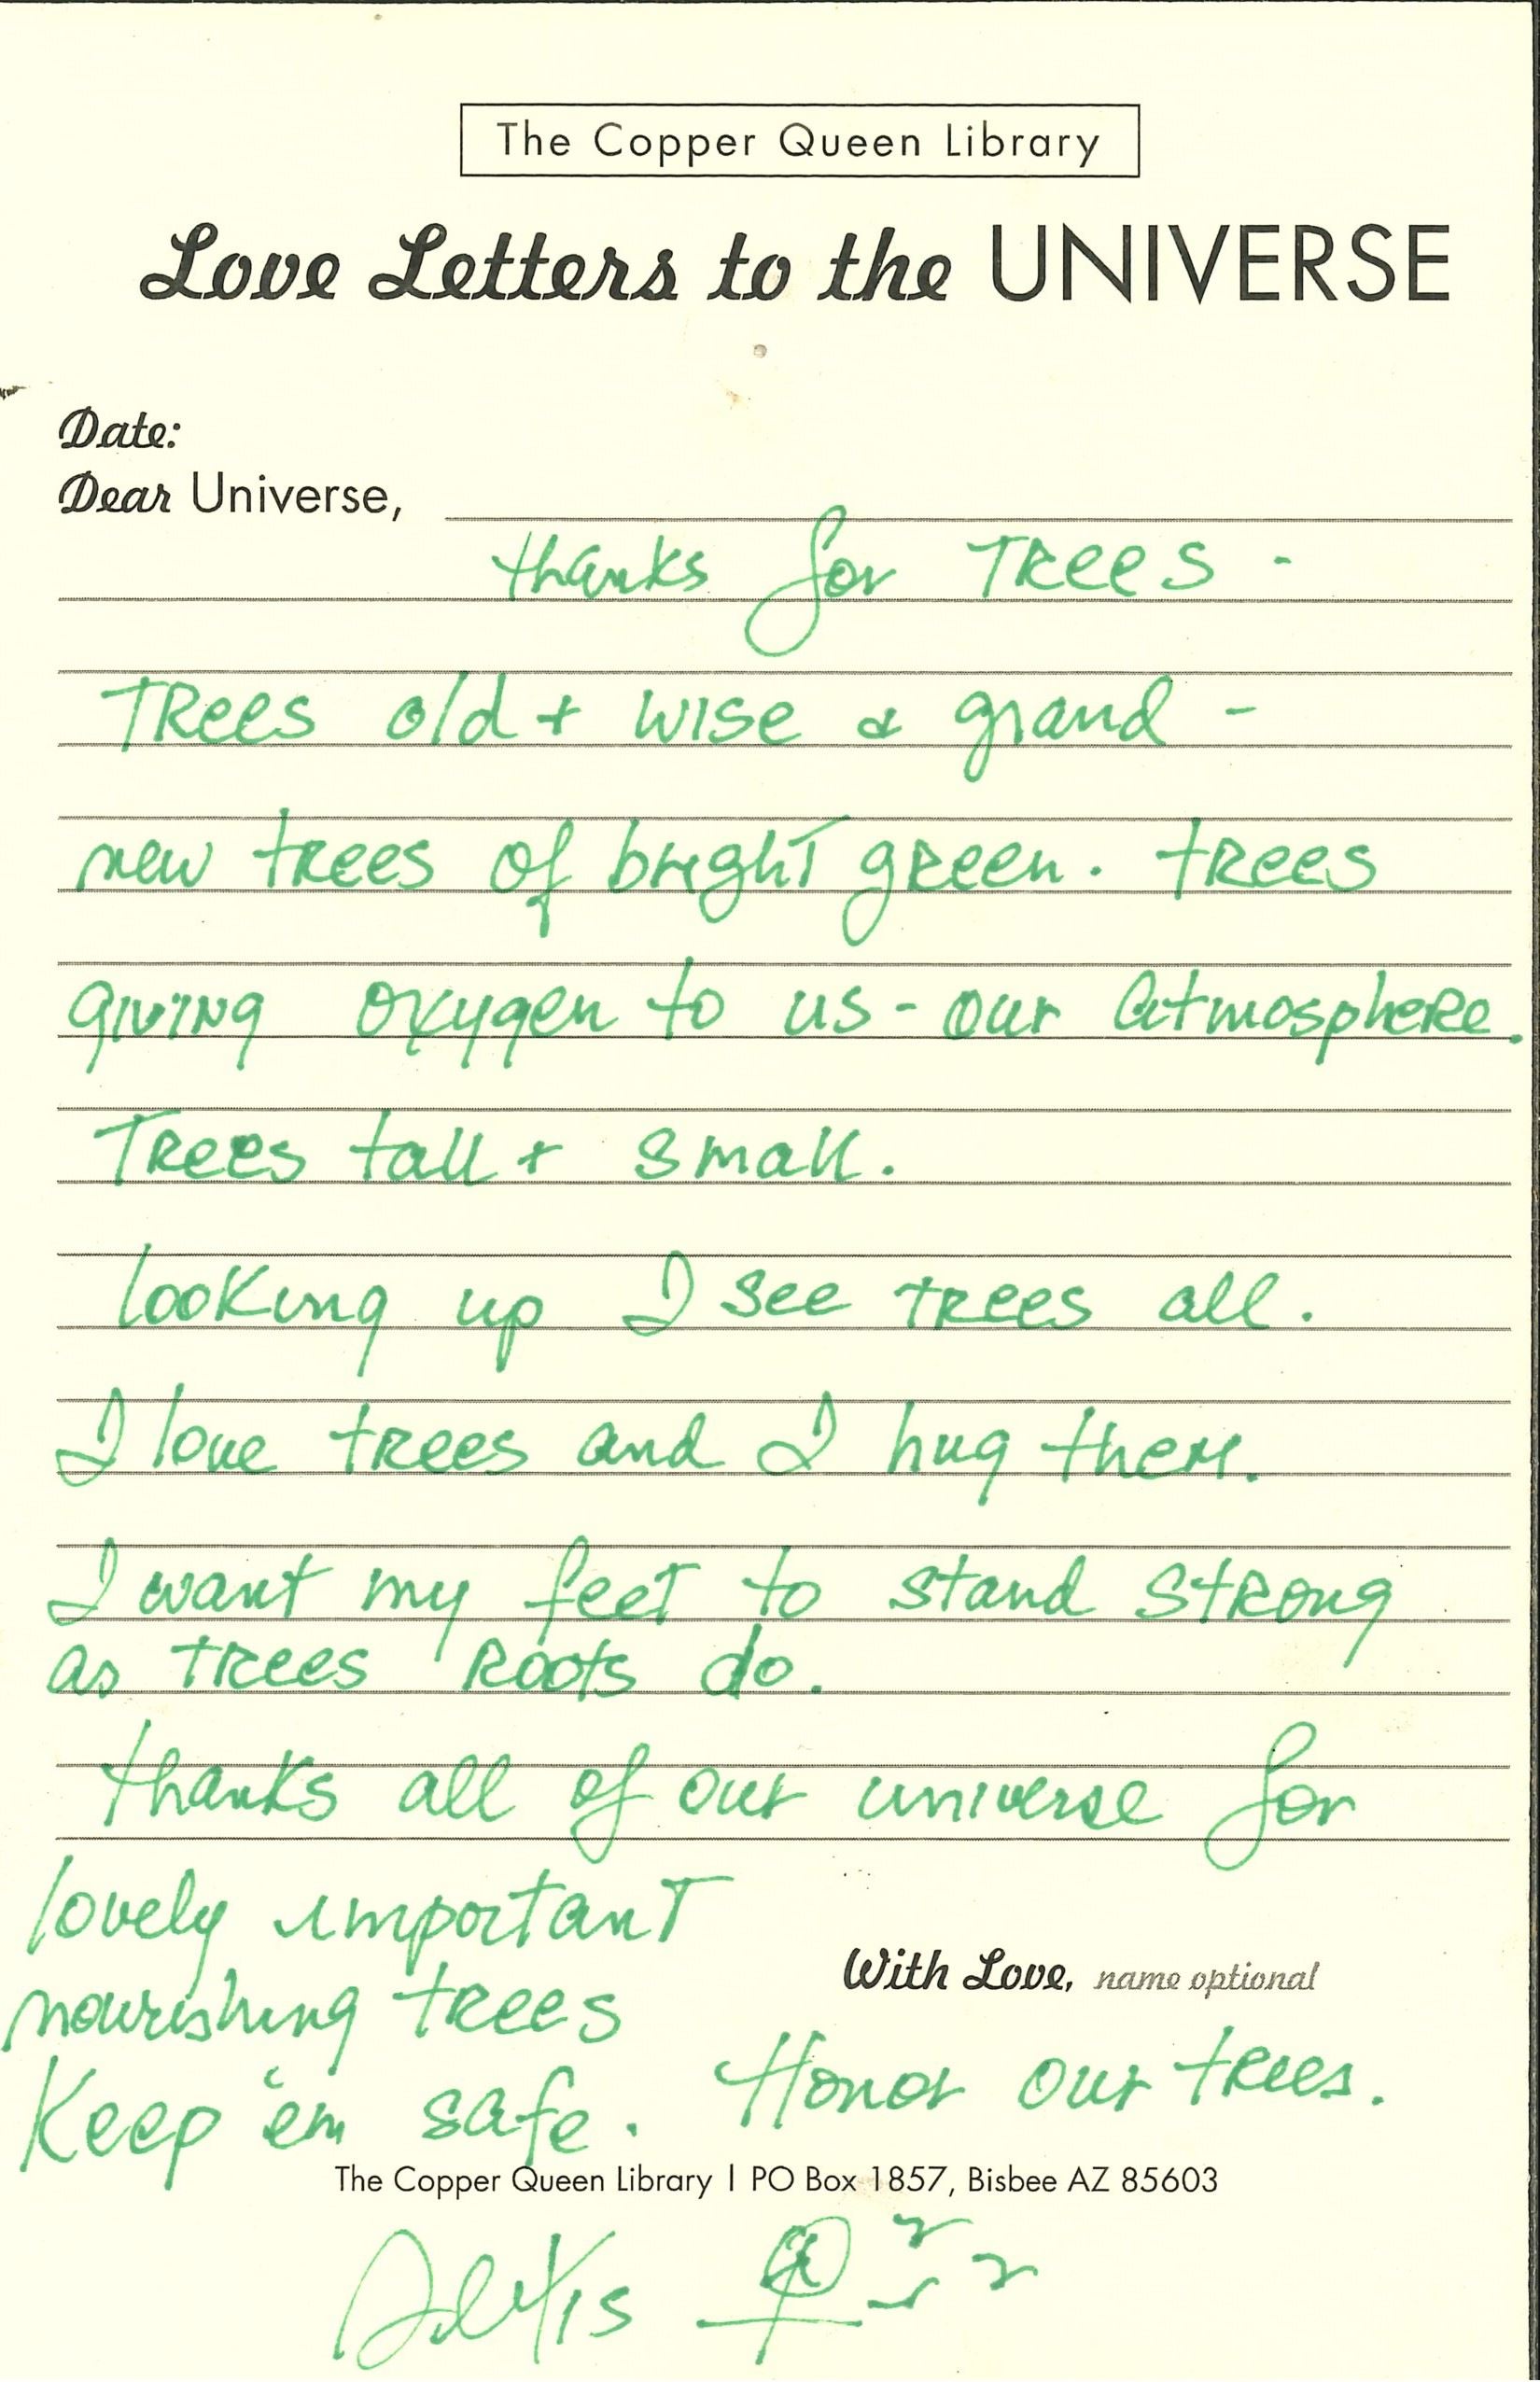 The Copper Queen Library
Love Letters to the UNIVERSE
Date:
Dear Universe,
thanks for TRees -
TRees old + wise & grand -
new trees of bright green. trees
giving oxygen to us - our atmosphere.
Trees tall + small.
looking up I see trees all.
I love trees and I hug them.
I want my feet to stand strong
as trees roots do.
thanks all of our universe for
lovely important
nourishing trees
Keep 'em safe.
With Love, name optional
Honor our trees.
The Copper Queen Library | PO Box 1857, Bisbee AZ 85603
Alexis